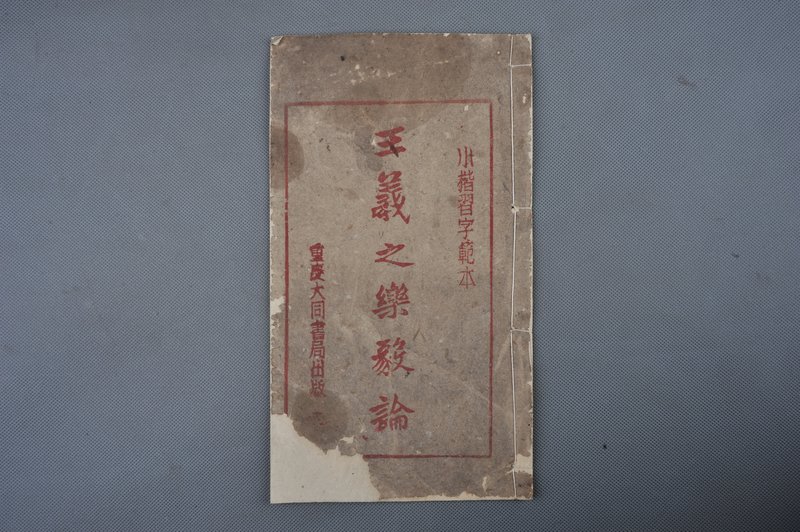 小楷習字範本
王羲之樂毅論
重慶大同書局出版